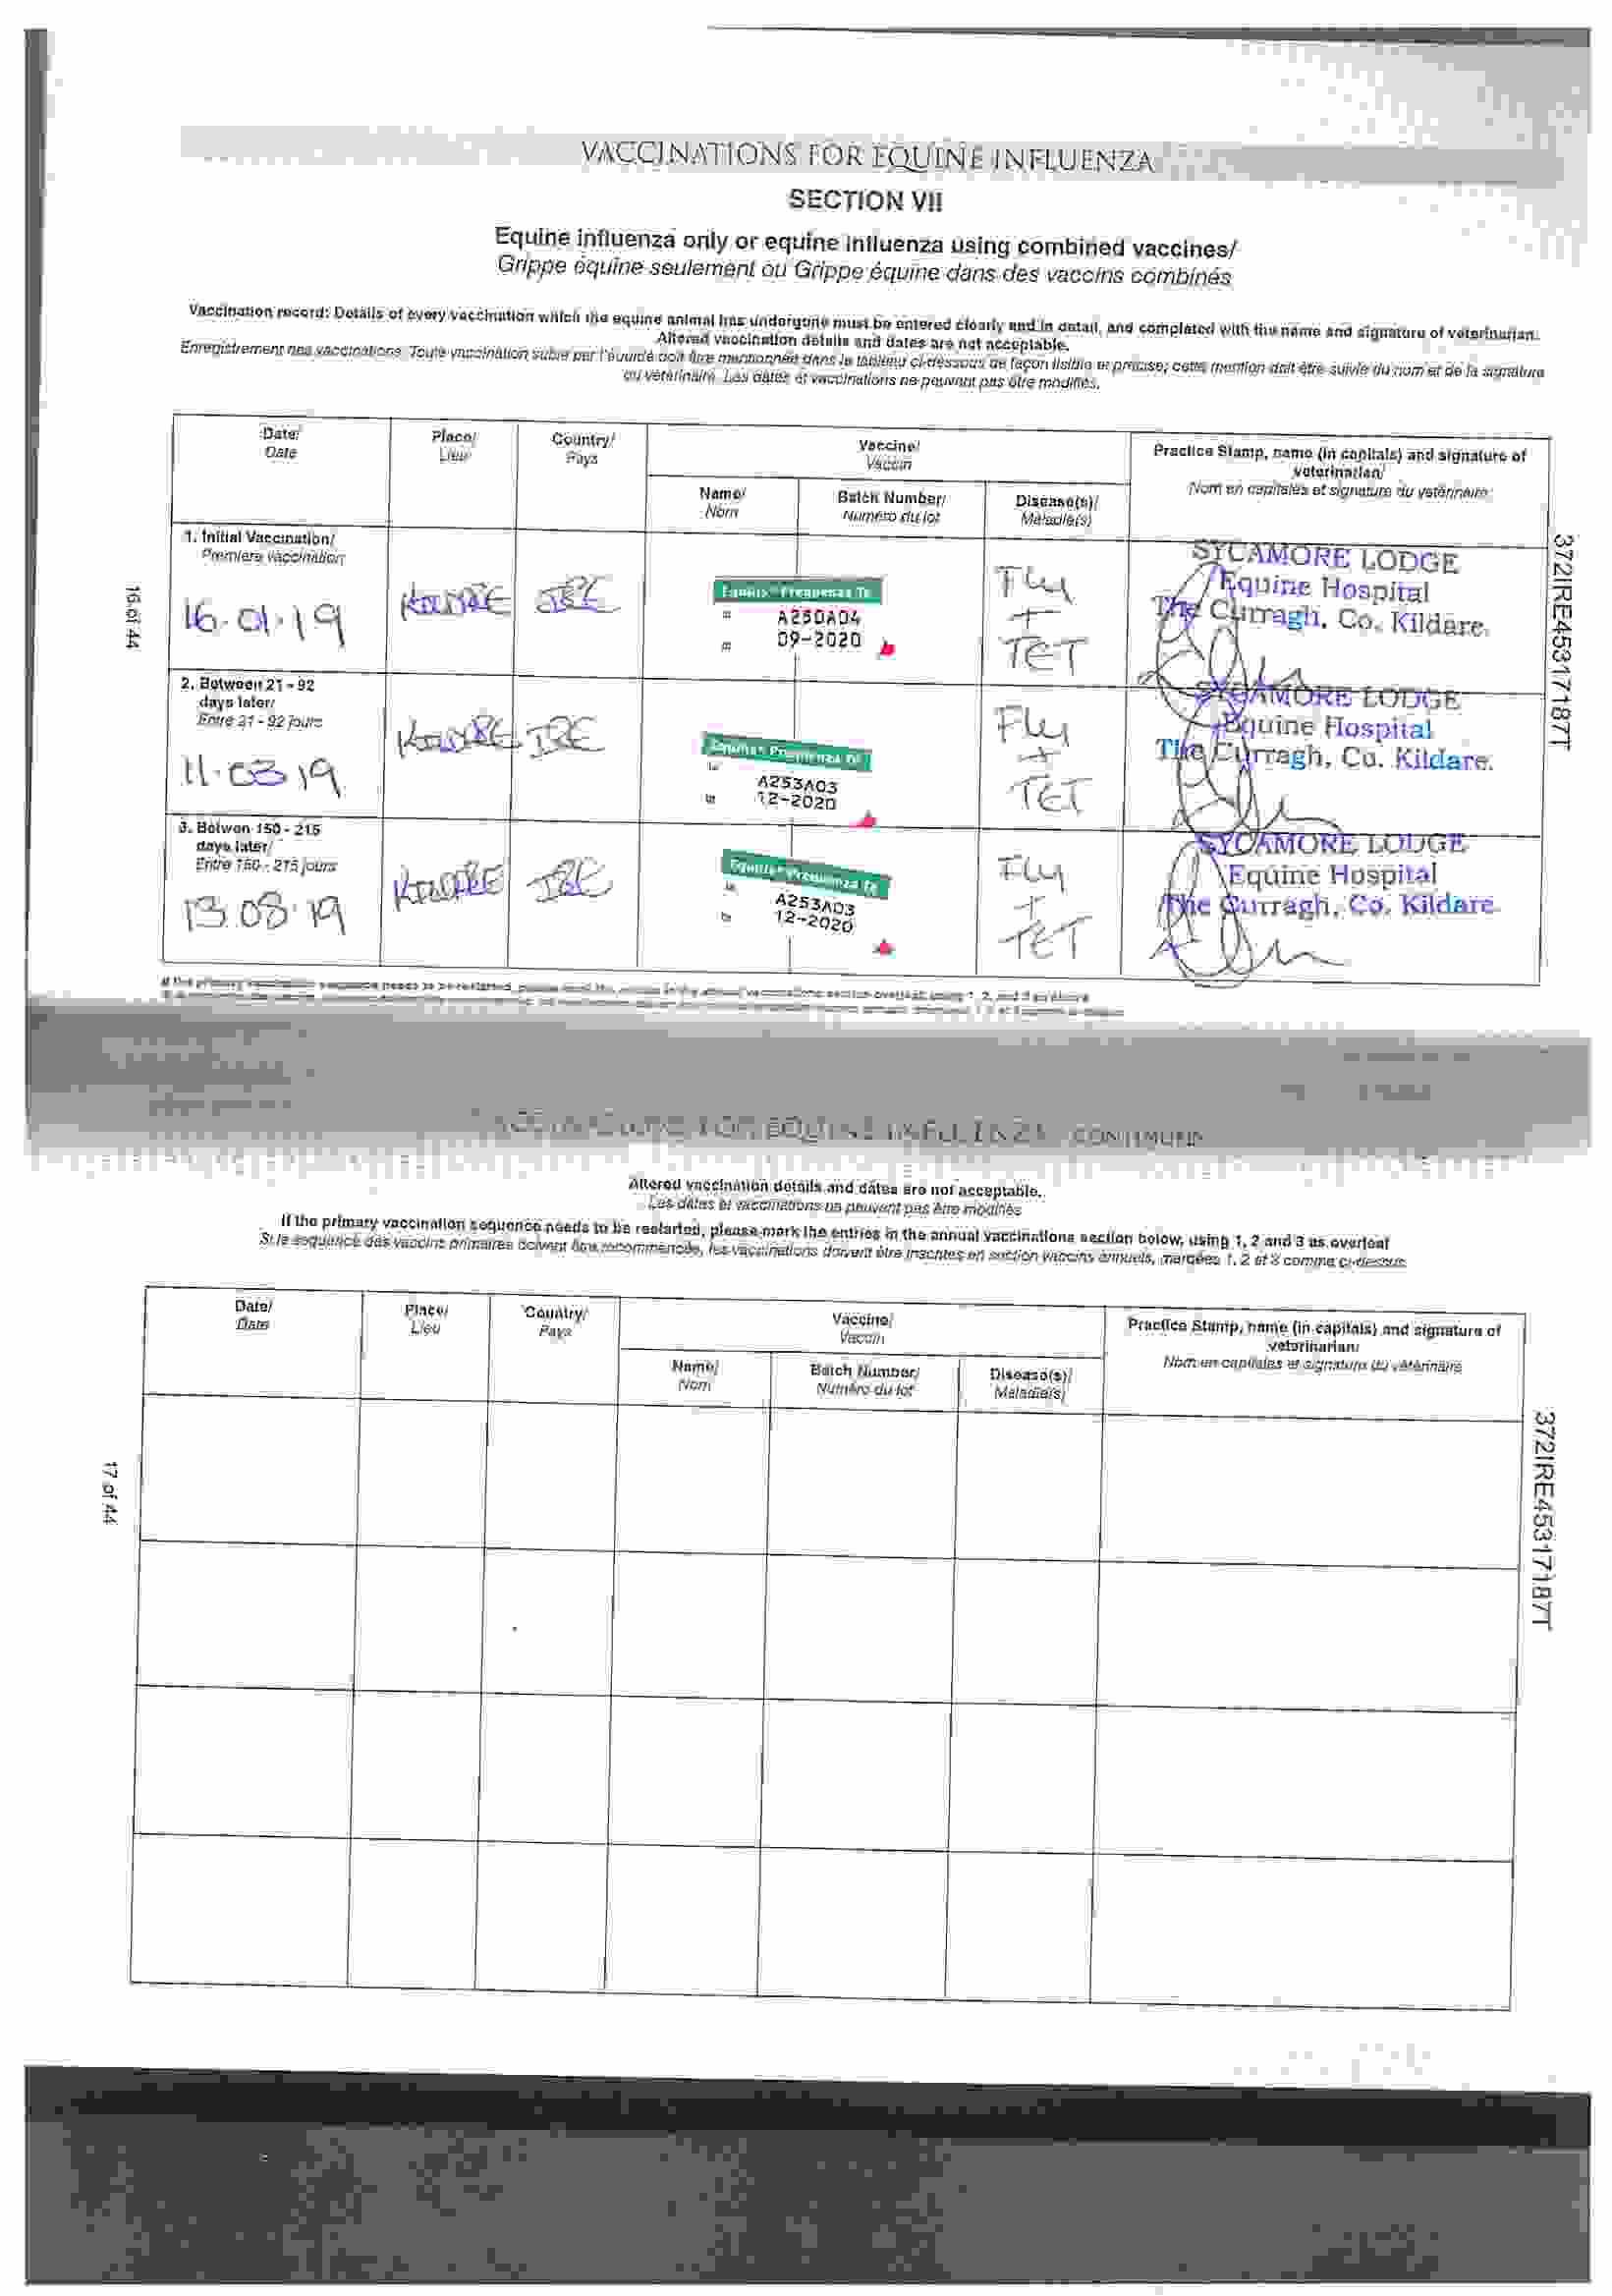 VACCINATIONS FOR EQUINE INFLUENZA
SECTION VII
Equine influenza only or equine influenza using combined vaccines/
Grippe équine seulement ou Grippe équine dans des vaccins combinés
Vaccination record: Details of every vaccination which the equine animal has undergone must be entered clearly and in detail, and completed with the name and signature of veterinarian.
Altered vaccination details and dates are not acceptable.
Enregistrement des vaccinations. Toute vaccination subie par l'équidé doit être mentionnée dans le tableau ci-dessous de façon lisible et précise; cette mention doit être suivie du nom et de la signature
du vétérinaire. Les dates et vaccinations ne peuvent pas être modifiés.
Date/
Date
Place/
Lieu
Country/
Pays
Vaccine/
Vaccin
Practice Stamp, name (in capitals) and signature of
veterinarian/
Nom en capitales et signature du vétérinaire
Name/
Nom
Batch Number/
Numéro du lot
Disease(s)/
Maladie(s)
1. Initial Vaccination/
Première vaccination
16.01.19
KILDARE
IRE
Equilis Prequenza Te
A250A04
09-2020
Flu
+
TET
SYCAMORE LODGE
Equine Hospital
The Curragh, Co. Kildare.
2. Between 21 - 92
days later/
Entre 21 - 92 jours
11.03.19
KILDARE
IRE
Equilis Prequenza Te
A253A03
12-2020
Flu
+
TET
SYCAMORE LODGE
Equine Hospital
The Curragh, Co. Kildare.
3. Betwen 150 - 215
days later/
Entre 150 - 215 jours
13.08.19
KILDARE
IRE
Equilis Prequenza Te
A253A03
12-2020
Flu
+
TET
SYCAMORE LODGE
Equine Hospital
The Curragh, Co. Kildare
16 of 44
372IRE45317187T
VACCINATIONS FOR EQUINE INFLUENZA CONTINUED
Altered vaccination details and dates are not acceptable.
Les dates et vaccinations ne peuvent pas être modifiés
If the primary vaccination sequence needs to be restarted, please mark the entries in the annual vaccinations section below, using 1, 2 and 3 as overleaf
Si la séquence des vaccins primaires doivent être recommencée, les vaccinations doivent être inscrites en section vaccins annuels, marqées 1, 2 et 3 comme ci-dessus
Date/
Date
Place/
Lieu
Country/
Pays
Vaccine/
Vaccin
Practice Stamp, name (in capitals) and signature of
veterinarian/
Nom en capitales et signature du vétérinaire
Name/
Nom
Batch Number/
Numéro du lot
Disease(s)/
Maladie(s)
17 of 44
372IRE45317187T